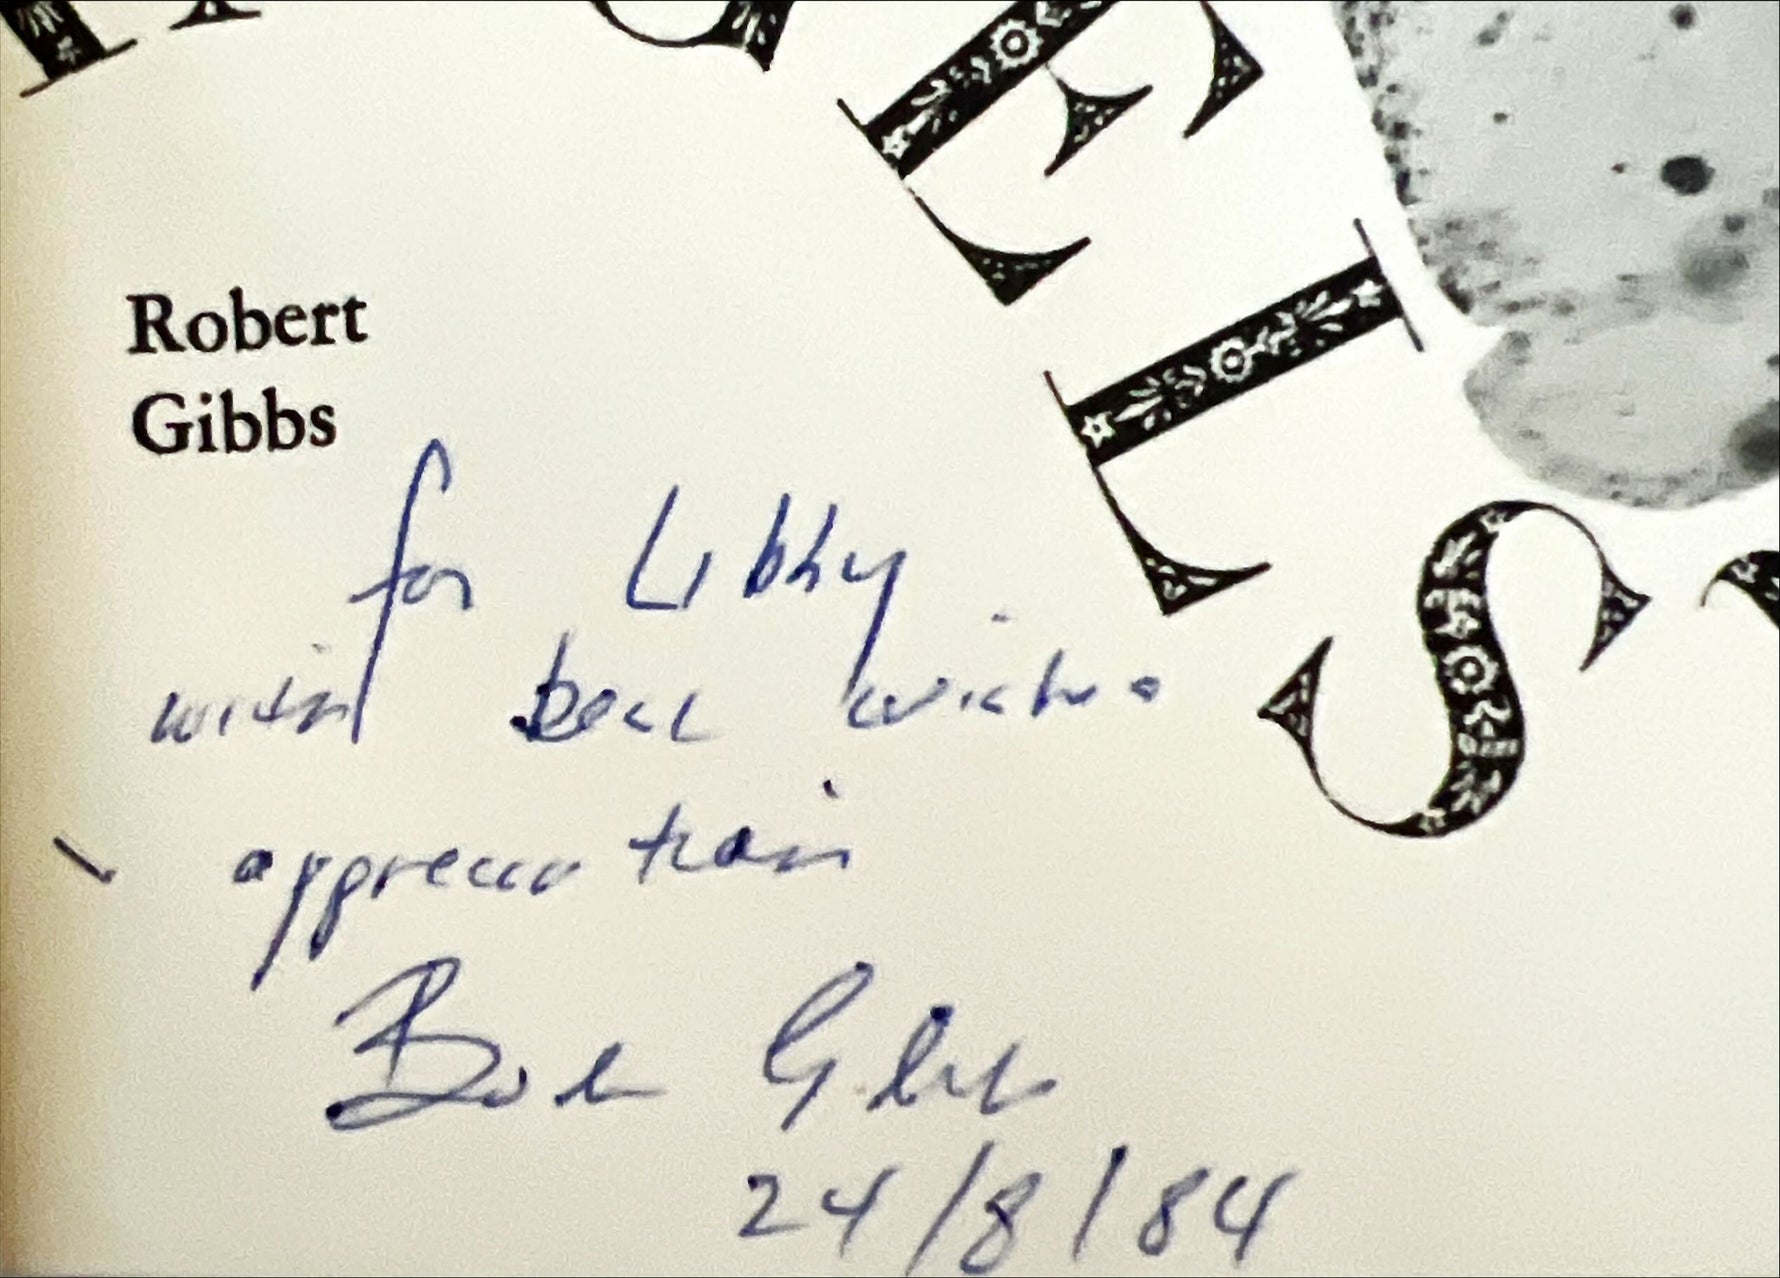 ELS
Robert
Gibbs
for Libby
with best wishes
appreciation
Bob Gibbs
24/8/84